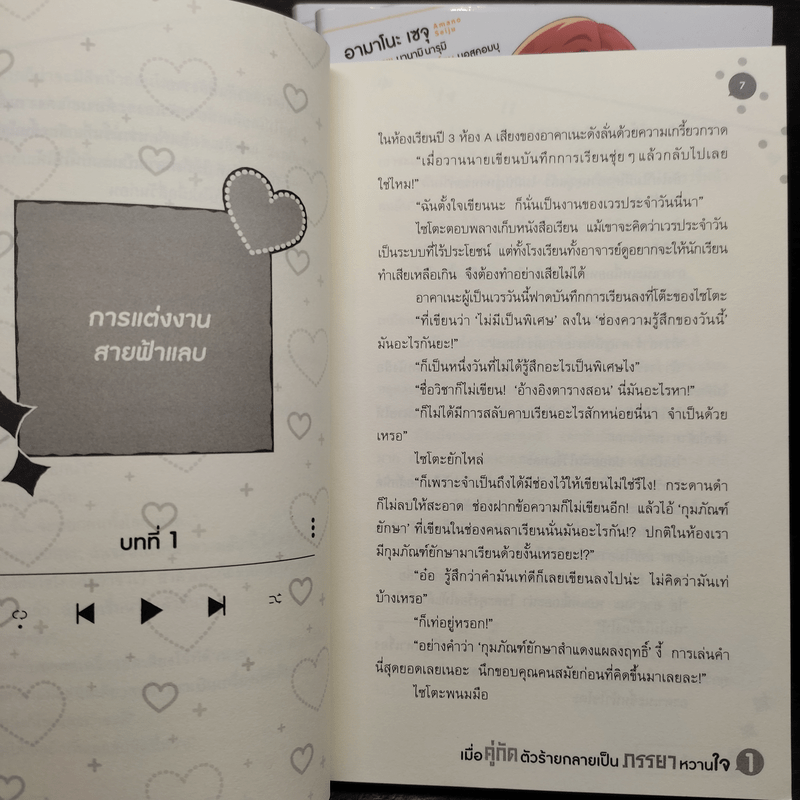 อามาโนะ เซจุ
Amano
Seiju
นานามิ นารุมิ
การแต่งงาน
สายฟ้าแลบ
บทที่ 1
7
ในห้องเรียนปี 3 ห้อง A เสียงของอาคาเนะดังลั่นด้วยความเกรี้ยวกราด
“เมื่อวานนายเขียนบันทึกการเรียนชุ่ย ๆ แล้วกลับไปเลย
ใช่ไหม!”
“ฉันตั้งใจเขียนนะ ก็นั่นเป็นงานของเวรประจำวันนี่นา”
ไซโตะตอบพลางเก็บหนังสือเรียน แม้เขาจะคิดว่าเวรประจำวัน
เป็นระบบที่ไร้ประโยชน์ แต่ทั้งโรงเรียนทั้งอาจารย์ดูอยากจะให้นักเรียน
ทำเสียเหลือเกิน จึงต้องทำอย่างเสียไม่ได้
อาคาเนะผู้เป็นเวรวันนี้ฟาดบันทึกการเรียนลงที่โต๊ะของไซโตะ
“ที่เขียนว่า ‘ไม่มีเป็นพิเศษ’ ลงใน ‘ช่องความรู้สึกของวันนี้’
มันอะไรกันยะ!”
“ก็เป็นหนึ่งวันที่ไม่ได้รู้สึกอะไรเป็นพิเศษไง”
“ชื่อวิชาก็ไม่เขียน! ‘อ้างอิงตารางสอน’ นี่มันอะไรหา!”
“ก็ไม่ได้มีการสลับคาบเรียนอะไรสักหน่อยนี่นา จำเป็นด้วย
เหรอ”
ไซโตะยักไหล่
“ก็เพราะจำเป็นถึงได้มีช่องไว้ให้เขียนไม่ใช่รึไง! กระดานดำ
ก็ไม่ลบให้สะอาด ช่องฝากข้อความก็ไม่เขียนอีก! แล้วไอ้ ‘กุมภัณฑ์
ยักษา’ ที่เขียนในช่องคนลาเรียนนั่นมันอะไรกัน!? ปกติในห้องเรา
มีกุมภัณฑ์ยักษามาเรียนด้วยงั้นเหรอยะ!?”
“อ๋อ รู้สึกว่าคำมันเท่ดีก็เลยเขียนลงไปน่ะ ไม่คิดว่ามันเท่
บ้างเหรอ”
“ก็เท่อยู่หรอก!”
“อย่างคำว่า ‘กุมภัณฑ์ยักษาสำแดงแผลงฤทธิ์’ งี้ การเล่นคำ
นี่สุดยอดเลยเนอะ นึกขอบคุณคนสมัยก่อนที่คิดขึ้นมาเลยละ!”
ไซโตะพนมมือ
เมื่อคู่กัดตัวร้ายกลายเป็น ภรรยาหวานใจ 1